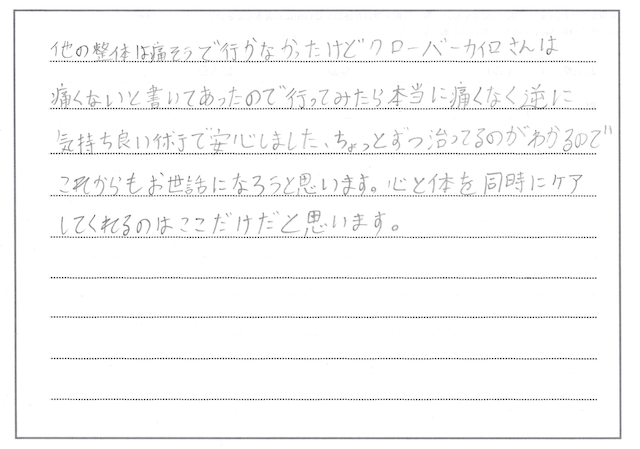 他の整体は痛そうで行かなかったけどクローバーカイロさんは
痛くないと書いてあったので行ってみたら本当に痛くなく逆に
気持ち良い施術で安心しました、ちょっとずつ治ってるのがわかるので
これからもお世話になろうと思います。心と体を同時にケア
してくれるのはここだけだと思います。